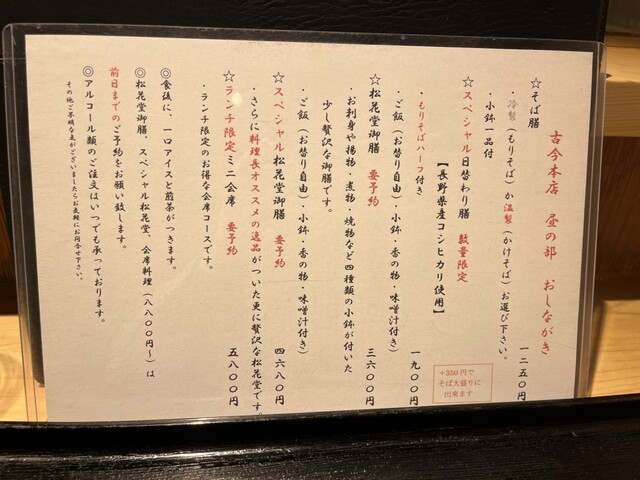 古今本店　昼の部　おしながき
☆そば膳　一二五〇円
・冷製（もりそば）か温製（かけそば）お選び下さい。
・小鉢一品付
☆スペシャル日替わり膳　数量限定
【長野県産コシヒカリ使用】
・もりそばハーフ付き　一九〇〇円
・ご飯（お替り自由）・小鉢・香の物・味噌汁付き）
☆松花堂御膳　要予約　三六〇〇円
・お刺身や揚物・煮物・焼物など四種類の小鉢が付いた
少し贅沢な御膳です。
・ご飯（お替り自由）・小鉢・香の物・味噌汁付き）
☆スペシャル松花堂御膳　要予約　四六八〇円
・さらに料理長オススメの逸品がついた更に贅沢な松花堂です。
☆ランチ限定ミニ会席　要予約　五八〇〇円
・ランチ限定のお得な会席コースです。
◎食後に、一口アイスと煎茶がつきます。
◎松花堂御膳、スペシャル松花堂、会席料理（八八〇〇円～）は
前日までのご予約をお願い致します。
◎アルコール類のご注文はいつでも承っております。
その他ご不明な点がございましたらお気軽にお問合せ下さい。
+350円で
そば大盛りに
出来ます